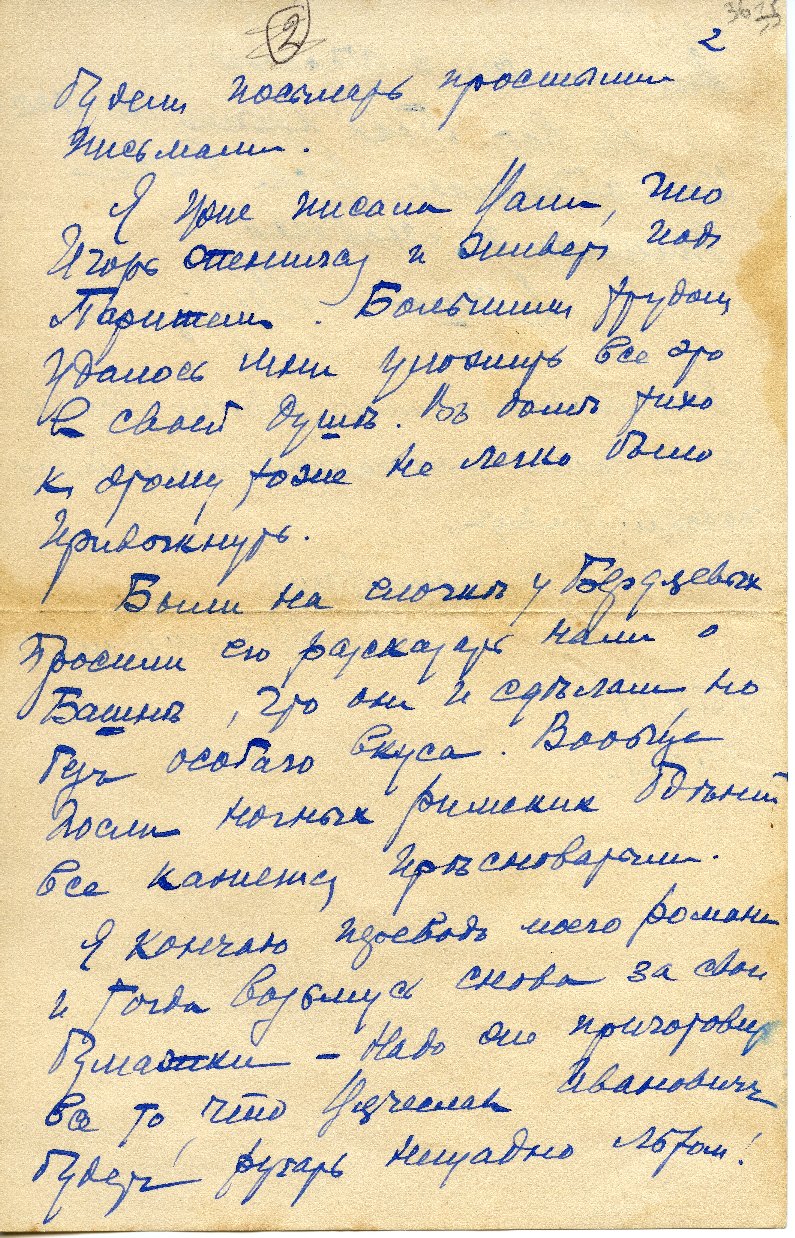 2
2
будемъ посылать простыми
письмами.
Я уже писала Вамъ, что
Игорь женился и живетъ подъ
Парижемъ. Большимъ трудомъ
удалось мнѣ уложить все это
въ своей душѣ. Въ домѣ тихо
къ этому тоже не легко было
привыкнуть.
Были на елочкѣ у Бердяевыхъ
Просили его разсказать намъ о
Башнѣ, что они и сдѣлали, но
безъ особаго вкуса. Вообще
послѣ ночныхъ римскихъ бдѣній
все кажется прѣсноватымъ.
Я кончаю переводъ моего романа
и тогда возьмусь снова за свои
бумажки — Надо же приготовить
все то, что Вячеславъ Ивановичъ
будетъ ругать нещадно лѣтомъ!